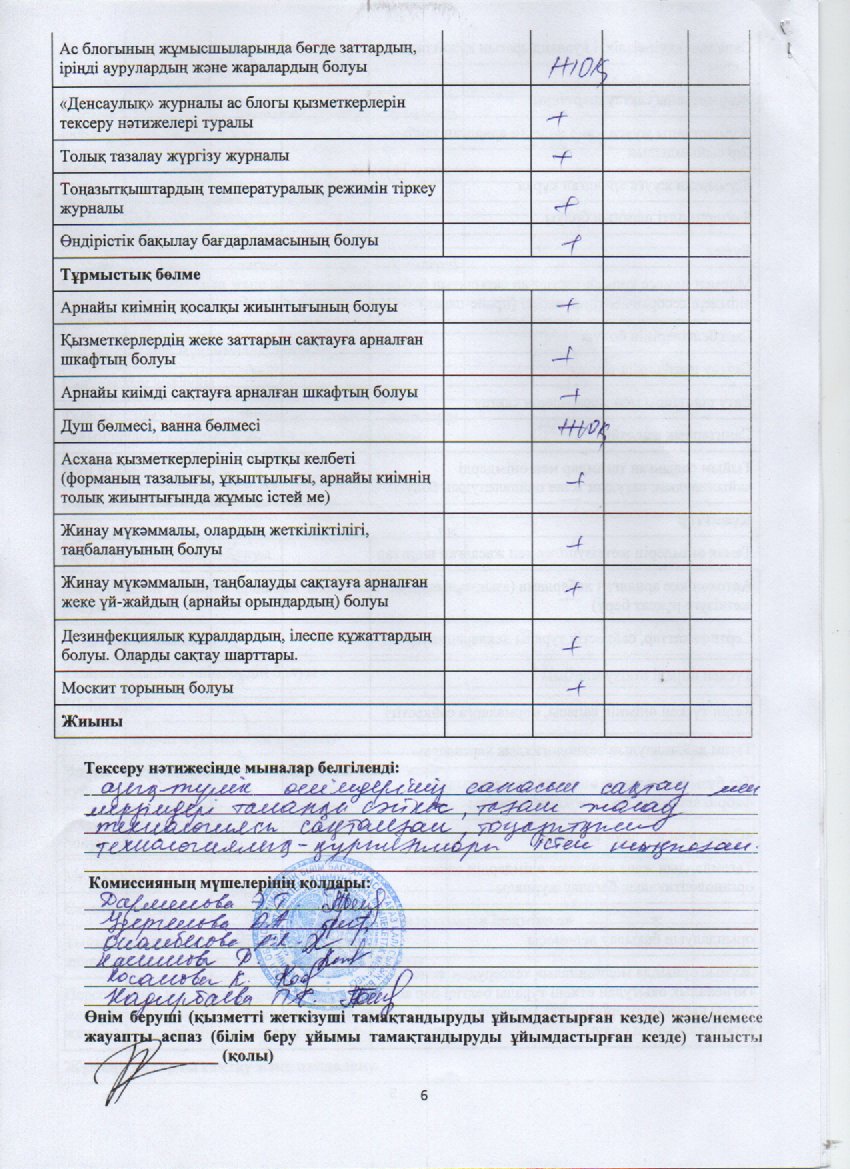 Ас блогының жұмысшыларында бөгде заттардың,
іріңді аурулардың және жаралардың болуы
жоқ
«Денсаулық» журналы ас блогы қызметкерлерін
тексеру нәтижелері туралы
+
Толық тазалау жүргізу журналы
+
Тоңазытқыштардың температуралық режимін тіркеу
журналы
+
Өндірістік бақылау бағдарламасының болуы
+
Тұрмыстық бөлме
Арнайы киімнің қосалқы жиынтығының болуы
+
Қызметкерлердің жеке заттарын сақтауға арналған
шкафтың болуы
+
Арнайы киімді сақтауға арналған шкафтың болуы
+
Душ бөлмесі, ванна бөлмесі
жоқ
Асхана қызметкерлерінің сыртқы келбеті
(форманың тазалығы, ұқыптылығы, арнайы киімнің
толық жиынтығында жұмыс істей ме)
+
Жинау мүкәммалы, олардың жеткіліктілігі,
таңбалануының болуы
+
Жинау мүкәммалын, таңбалауды сақтауға арналған
жеке үй-жайдың (арнайы орындардың) болуы
+
Дезинфекциялық құралдардың, ілеспе құжаттардың
болуы. Оларды сақтау шарттары.
+
Москит торының болуы
+
Жиыны
Тексеру нәтижесінде мыналар белгіленді:
азық-түлік өнімдерінің сапасын сақтау мен
мерзімдері талапқа сәйкес, тағам
технологиясы сақталған,
технологиялық істен шықпаған.
Комиссияның мүшелерінің қолдары:
Өнім беруші (қызметті жеткізуші тамақтандыруды ұйымдастырған кезде) және/немесе
жауапты аспаз (білім беру ұйымы тамақтандыруды ұйымдастырған кезде) танысты
(қолы)
6